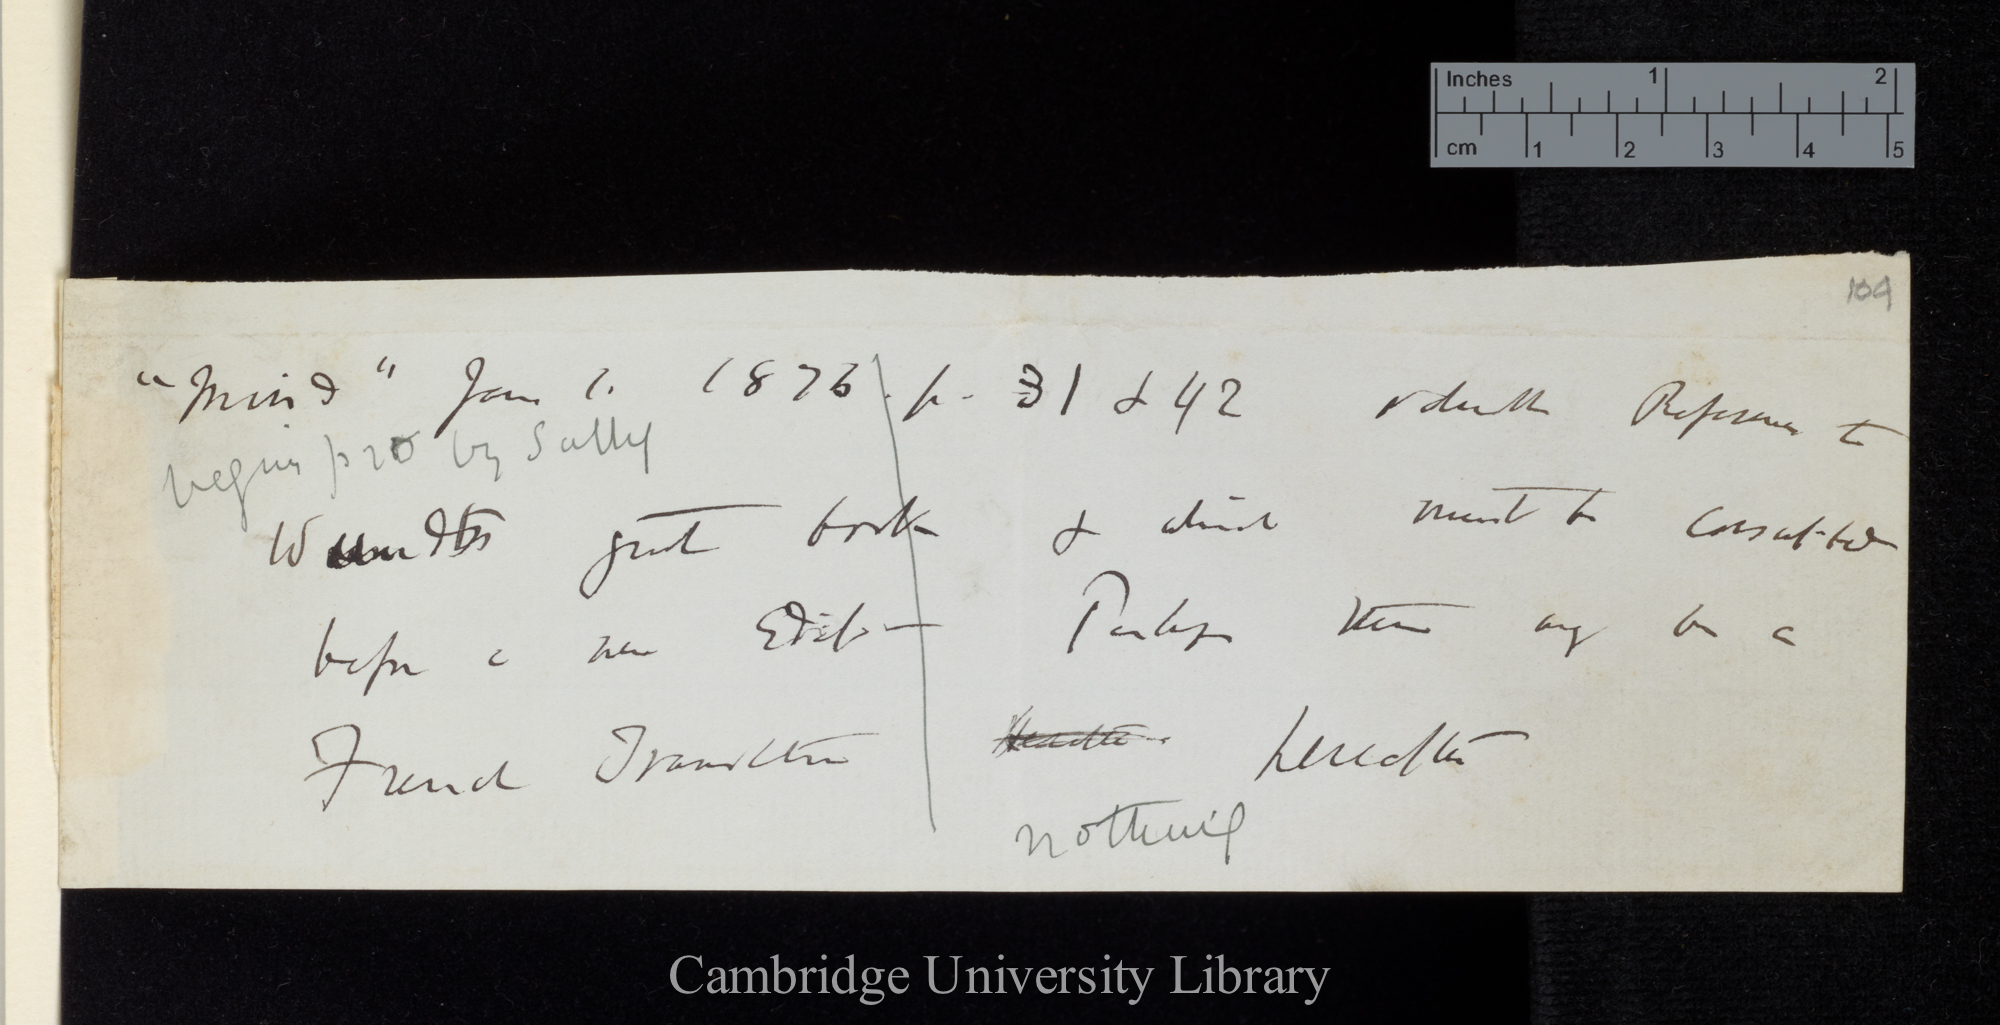 Inches 1 2
cm 1 2 3 4 5
104
"Mind" Jan 1. 1876 p. 31 & 42 Reference to
begins p 20 by Sully
Wundts great book & which must be consulted
before a new Edition Perhaps there may be a
French Translation hereafter
nothing
Cambridge University Library